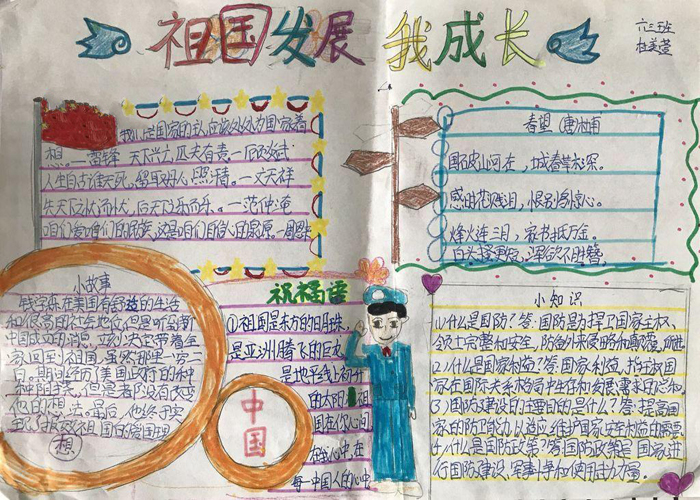 祖国发展 我成长
六三班
杜美萱
我们是国家的主人应该处处为国家着
想。—雷锋 天下兴亡,匹夫有责。—顾炎武
人生自古谁无死,留取丹心照汗青。—文天祥
先天下之忧而忧,后天下之乐而乐。—范仲淹
咱们爱咱们的民族,这是咱们自信心的泉源。—周恩来
春望 (唐)杜甫
国破山河在,城春草木深。
感时花溅泪,恨别鸟惊心。
烽火连三月,家书抵万金。
白头搔更短,浑欲不胜簪。
小故事
钱学森在美国有舒适的生活
和很高的社会地位,但是听到新
中国成立的消息,立刻决定带着全
家回到祖国。虽然
期间经历了美国政府的种
种阻挠,但是者没有改变
他的想法。最后,他终于实
现了报效祖国的爱国理
想
祝福语
①祖国是东方的日月珠,
是亚洲腾飞的巨龙
是地平线上初升
的太阳。祖
国在你心间
在我心中,在
每一中国人的心中
中国
小知识
1、什么是国防?答:国防是为捍卫国家主权、
领土完整和安全,防备外来侵略和颠覆,所进
2、什么是国家利益?答:国家利益,指主权国
家在国际关系格局中生存和发展需求的总和。
3、国防建设的主要目的是什么?答:提高国
家的防卫能力以适应维护国家安全利益的需要
4、什么是国防政策?答:国防政策是国家进
行国防建设、军事斗争和使用武力量。